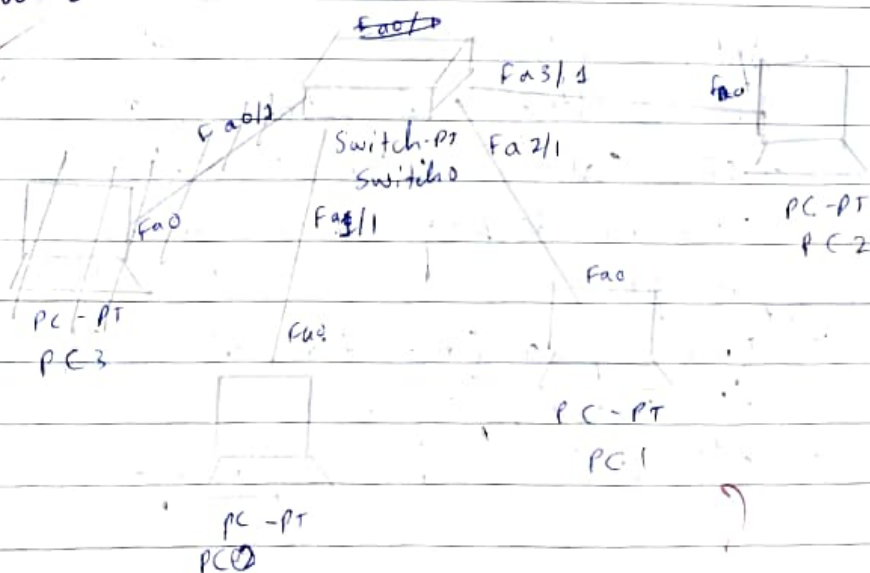 Fa0/1
Fa3/1
Fa0
Fa0/1
Switch-PT
Switch0
Fa2/1
Fa0
Fa1/1
PC-PT
PC-2
Fa0
PC-PT
PC-3
Fa0
PC-PT
PC-1
PC-PT